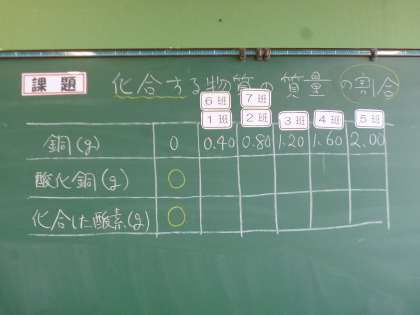 課題 化合する物質の質量の割合
6班 7班
1班 2班 3班 4班 5班
銅(g) 0 0.40 0.80 1.20 1.60 2.00
酸化銅(g) 0
化合した酸素(g) 0